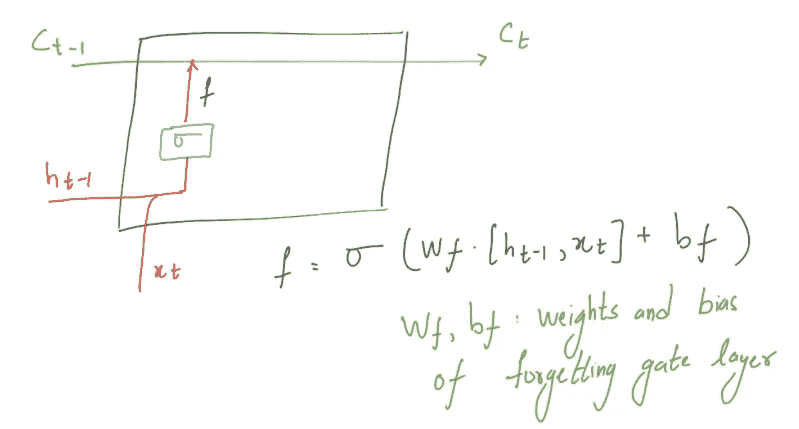 C t-1
C t
f
σ
h t-1
x t
f = σ (Wf · [h t-1, x t] + bf)
Wf, bf : weights and bias
of forgetting gate layer